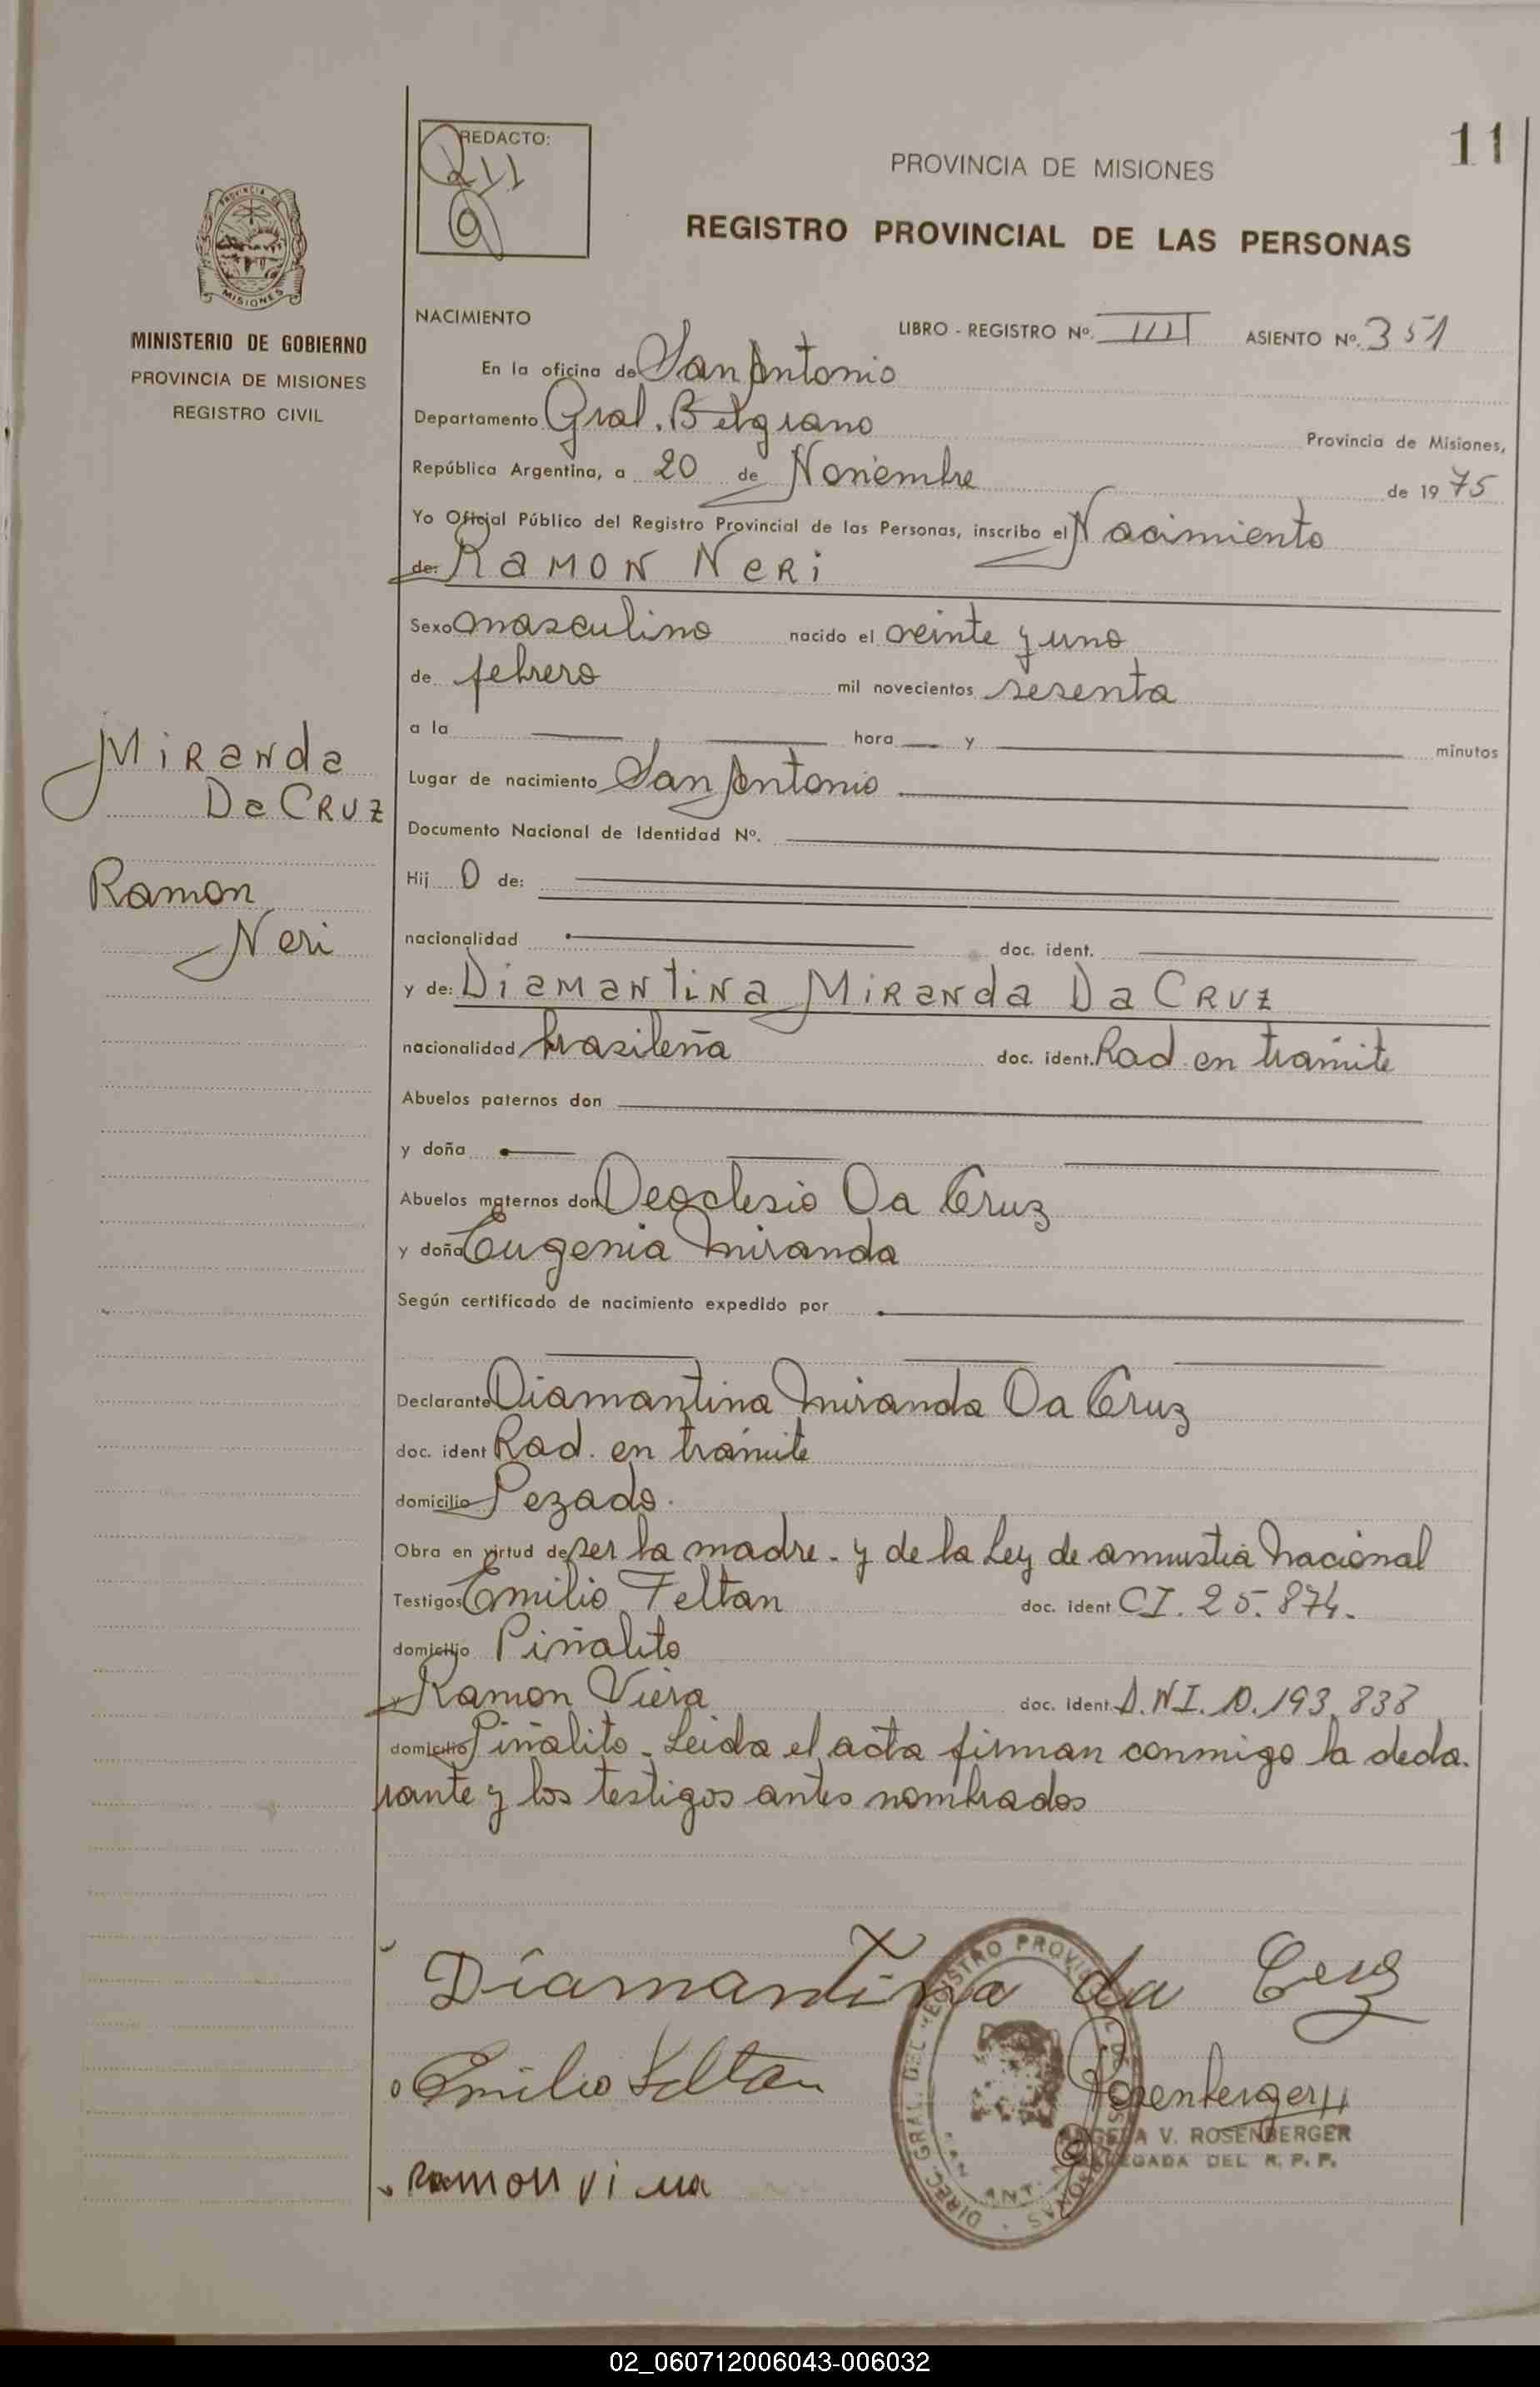 11
REDACTO:
PROVINCIA DE MISIONES
REGISTRO PROVINCIAL DE LAS PERSONAS
PROVINCIA DE
MISIONES
MINISTERIO DE GOBIERNO
PROVINCIA DE MISIONES
REGISTRO CIVIL
NACIMIENTO
LIBRO - REGISTRO Nº. III ASIENTO Nº. 351
En la oficina de San Antonio
Departamento Gral. Belgrano Provincia de Misiones,
República Argentina, a 20 de Noviembre de 1975
Yo Oficial Público del Registro Provincial de las Personas, inscribo el Nacimiento
de: RAMON NERI
Sexo masculino nacido el veinte y uno
de febrero mil novecientos sesenta
a la hora y minutos
Miranda
Da Cruz
Ramon
Neri
Lugar de nacimiento San Antonio
Documento Nacional de Identidad Nº.
Hij o de:
nacionalidad doc. ident.
y de: Diamantina Miranda Da Cruz
nacionalidad brasileña doc. ident. Rad. en tramite
Abuelos paternos don
y doña
Abuelos maternos don Deoclesio Da Cruz
y doña Eugenia Miranda
Según certificado de nacimiento expedido por
Declarante Diamantina Miranda Da Cruz
doc. ident Rad. en tramite
domicilio Pezado.
Obra en virtud de ser la madre - y de la Ley de amnistia Nacional
Testigos Emilio Feltan doc. ident CI. 25.874.
domicilio Piñalito
y Ramon Viera doc. ident. D.N.I. 10.193.838
domicilio Piñalito - Leida el acta firman conmigo la decla-
rante y los testigos antes nombrados
Diamantina da Cruz
Emilio Feltan
Rosenberger
ANGELA V. ROSENBERGER
DELEGADA DEL R. P. P.
DIREC. GRAL. DEL REGISTRO PROVINCIAL DE LAS PERSONAS
SAN ANT.
Ramon viera
02_060712006043-006032